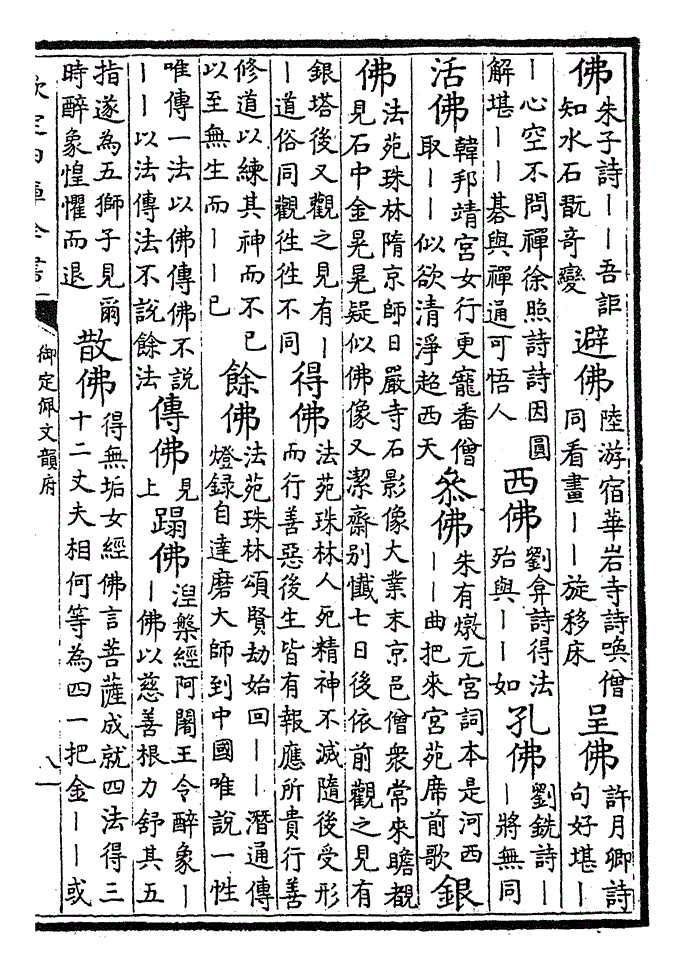 佛朱子詩——吾詎知水石翫奇變避佛陸游宿華岩寺詩喚僧同看畫——旋移床呈佛許月卿詩句好堪—
—心空不問禪徐照詩詩因圓解堪——碁與禪通可悟人西佛劉弇詩得法殆與——如孔佛劉銑詩——將無同
活佛韓邦靖宮女行更寵番僧取——似欲清淨超西天叅佛朱有燉元宮詞本是河西——曲把來宮苑席前歌銀
佛法苑珠林隋京師日嚴寺石影像大業末京邑僧衆常來瞻覩見石中金晃晃疑似佛像又潔齋别懺七日後依前觀之見有
銀塔後又觀之見有——道俗同觀徃徃不同得佛法苑珠林人死精神不滅隨後受形而行善惡後生皆有報應所貴行善
修道以練其神而不已以至無生而——已餘佛法苑珠林頌賢劫始回——潛通傳燈録自達磨大師到中國唯說一性
唯傳一法以佛傳佛不說——以法傳法不說餘法傳佛見上蹋佛湼槃經阿闍王令醉象——佛以慈善根力舒其五
指遂為五獅子見爾時醉象惶懼而退散佛得無垢女經佛言菩薩成就四法得三十二丈夫相何等為四一把金——或
欽定四庫全書
御定佩文韻府
八